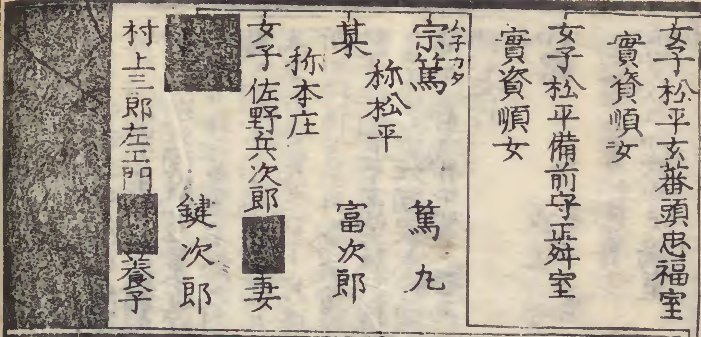 女子松平玄蕃頭忠福室
實資順女
女子松平備前守正舛室
實資順女
ムネカタ
宗篤 篤九
称松平
某 富次郎
称本庄
女子佐野兵次郎 妻
鍵次郎
村上三郎左エ門 養子